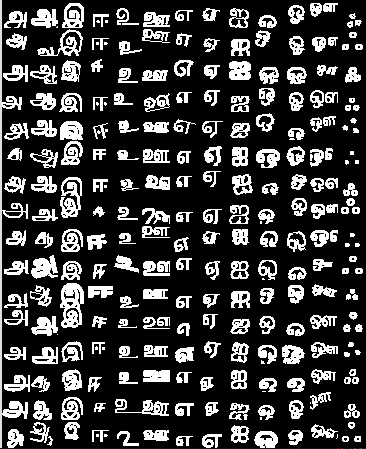 அ ஆ இ ஈ உ ஊ எ ஏ ஐ ஒ ஓ ஔ ஃ
அ ஆ இ ஈ உ ஊ எ ஏ ஐ ஒ ஓ ஔ ஃ
அ ஆ இ ஈ உ ஊ எ ஏ ஐ ஒ ஓ ஔ ஃ
அ ஆ இ ஈ உ ஊ எ ஏ ஐ ஒ ஓ ஔ ஃ
அ ஆ இ ஈ உ ஊ எ ஏ ஐ ஒ ஓ ஔ ஃ
அ ஆ இ ஈ உ ஊ எ ஏ ஐ ஒ ஓ ஔ ஃ
அ ஆ இ ஈ உ ஊ எ ஏ ஐ ஒ ஓ ஔ ஃ
அ ஆ இ ஈ உ ஊ எ ஏ ஐ ஒ ஓ ஔ ஃ
அ ஆ இ ஈ உ ஊ எ ஏ ஐ ஒ ஓ ஔ ஃ
அ ஆ இ ஈ உ ஊ எ ஏ ஐ ஒ ஓ ஔ ஃ
அ ஆ இ ஈ உ ஊ எ ஏ ஐ ஒ ஓ ஔ ஃ
அ ஆ இ ஈ உ ஊ எ ஏ ஐ ஒ ஓ ஔ ஃ
அ ஆ இ ஈ உ ஊ எ ஏ ஐ ஒ ஓ ஔ ஃ
அ ஆ இ ஈ உ ஊ எ ஏ ஐ ஒ ஓ ஔ ஃ
அ ஆ இ ஈ உ ஊ எ ஏ ஐ ஒ ஓ ஔ ஃ
அ ஆ இ ஈ உ ஊ எ ஏ ஐ ஒ ஓ ஔ ஃ